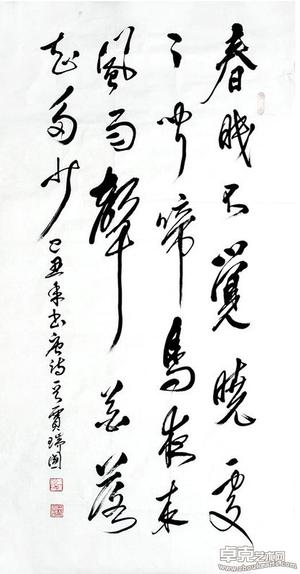 春眠不覺曉處
々聞啼鳥夜來
風雨聲花落
知多少 己丑年书唐诗 賈瑞圖
卓克艺术网
www.zhuokearts.com